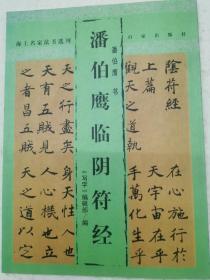 海上名家法书选刊
百家出版社
潘伯鹰书
潘伯鹰临阴符经
《写字》编辑部·编
陰符經
上篇
觀天之道執
天之行盡矣
天有五賊見
之者昌五賊
在心施行於
天宇宙在乎
手萬化生乎
身天性人也
人心機也立
天之道以定